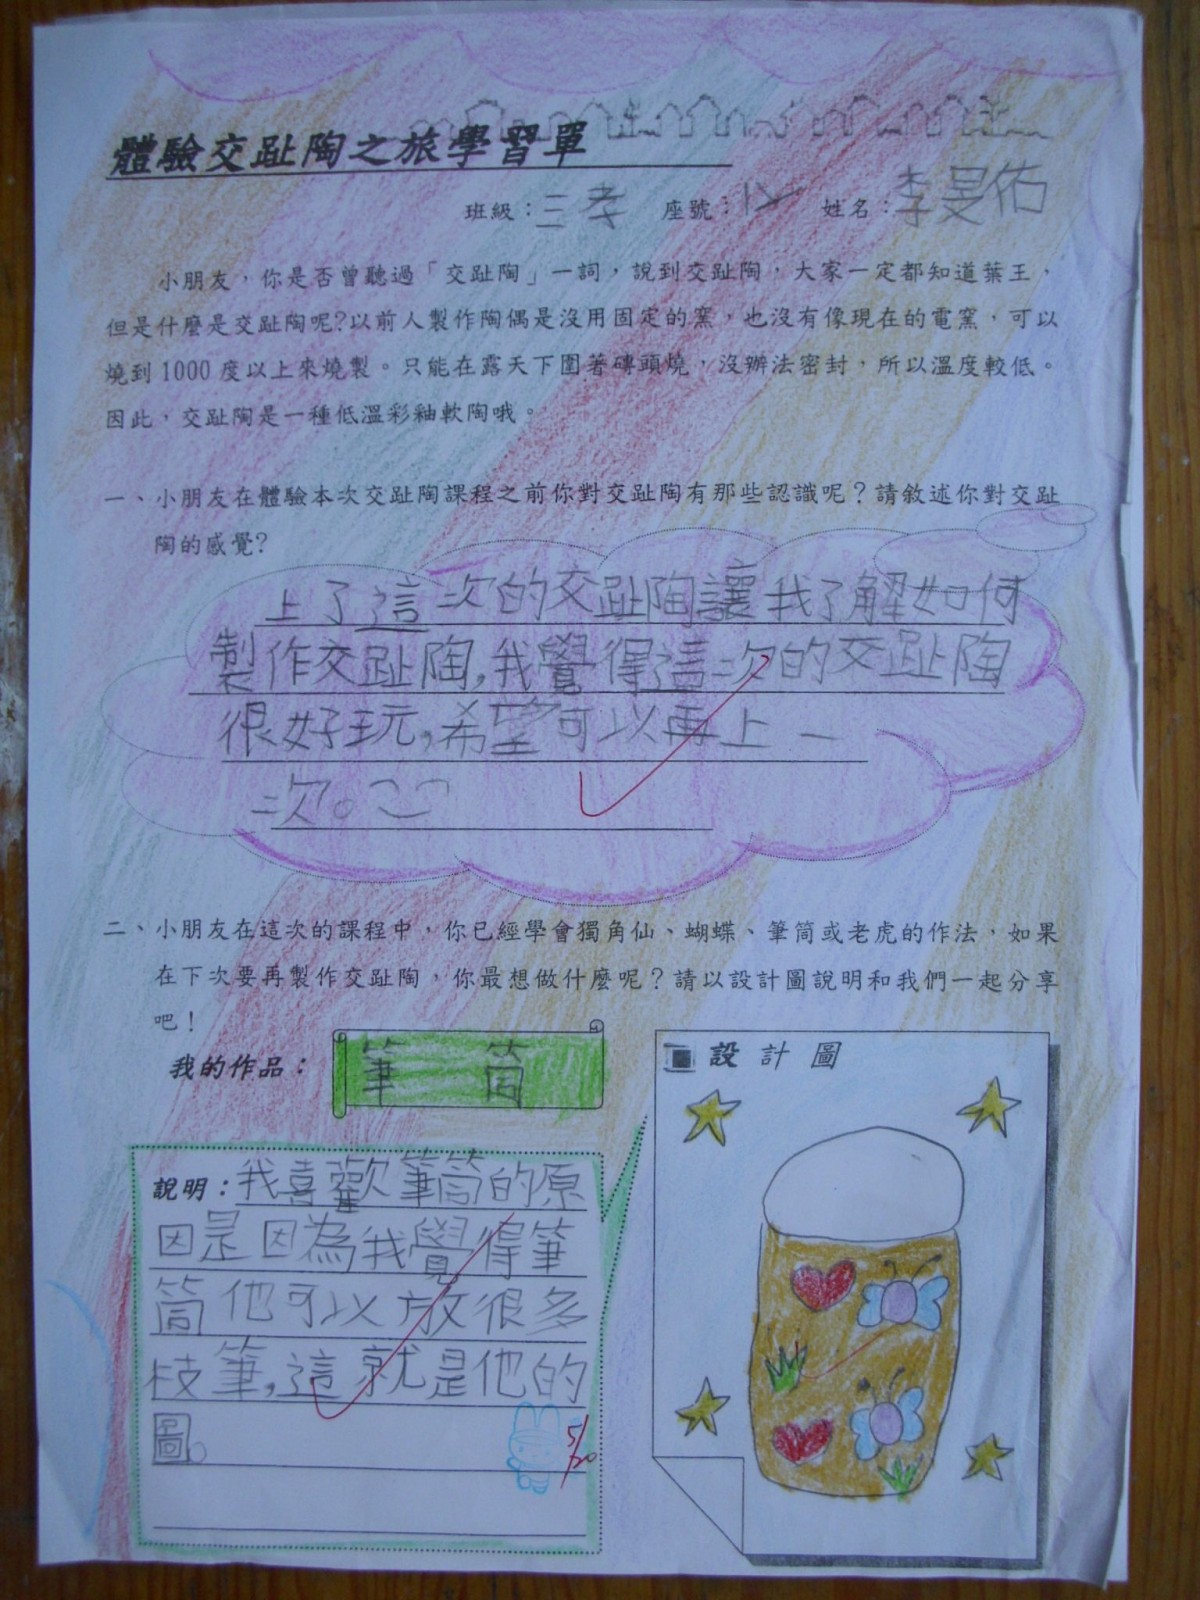 體驗交趾陶之旅學習單
班級：三孝 座號：12 姓名：李旻佑
小朋友，你是否曾聽過「交趾陶」一詞，說到交趾陶，大家一定都知道葉王，
但是什麼是交趾陶呢?以前人製作陶偶是沒用固定的窯，也沒有像現在的電窯，可以
燒到1000度以上來燒製。只能在露天下圍著磚頭燒，沒辦法密封，所以溫度較低。
因此，交趾陶是一種低溫彩釉軟陶哦。
一、小朋友在體驗本次交趾陶課程之前你對交趾陶有那些認識呢？請敘述你對交趾
陶的感覺?
上了這次的交趾陶讓我了解如何
製作交趾陶,我覺得這次的交趾陶
很好玩,希望可以再上一
次。
二、小朋友在這次的課程中，你已經學會獨角仙、蝴蝶、筆筒或老虎的作法，如果
在下次要再製作交趾陶，你最想做什麼呢？請以設計圖說明和我們一起分享
吧！
我的作品： 筆筒
設計圖
說明：我喜歡筆筒的原
因是因為我覺得筆
筒他可以放很多
枝筆,這就是他的
圖。
5/20